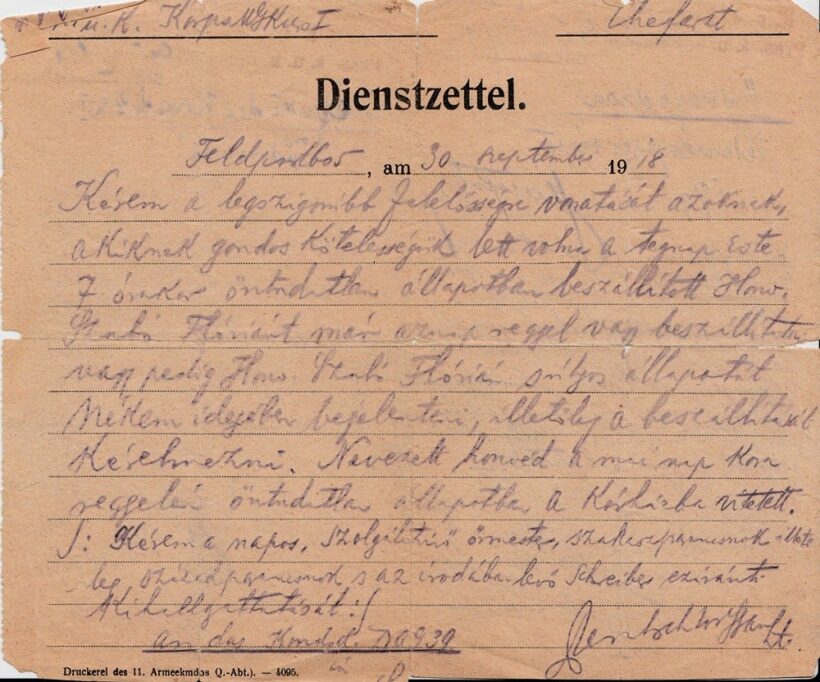 u. K. Korps Chefarzt
Dienstzettel.
Feldpostbos, am 30. september 1918
Kérem a legszigorúbb felelősségre vonatását azoknak,
akiknek gondos kötelességük lett volna a tegnap este
7 órakor öntudatlan állapotban beszállított Honv.
Szabó Flóriánt már aznap reggel vagy beszállittatni
vagy pedig Honv. Szabó Flórián súlyos állapotát
nékem idejében bejelenteni, illetőleg a beszállítását
kérelmezni. Nevezett honvéd a mai nap kora
reggelén öntudatlan állapotban a kórházba vitetett.
/: Kérem a napos, szolgálattevő őrmester, szakaszparancsnok illető
leg századparancsnok s az irodában levő Schreiber eziránti
kihallgattatását :/
an das Komdo. D
Druckerei des 11. Armeekmdos Q.-Abt.). — 4095.